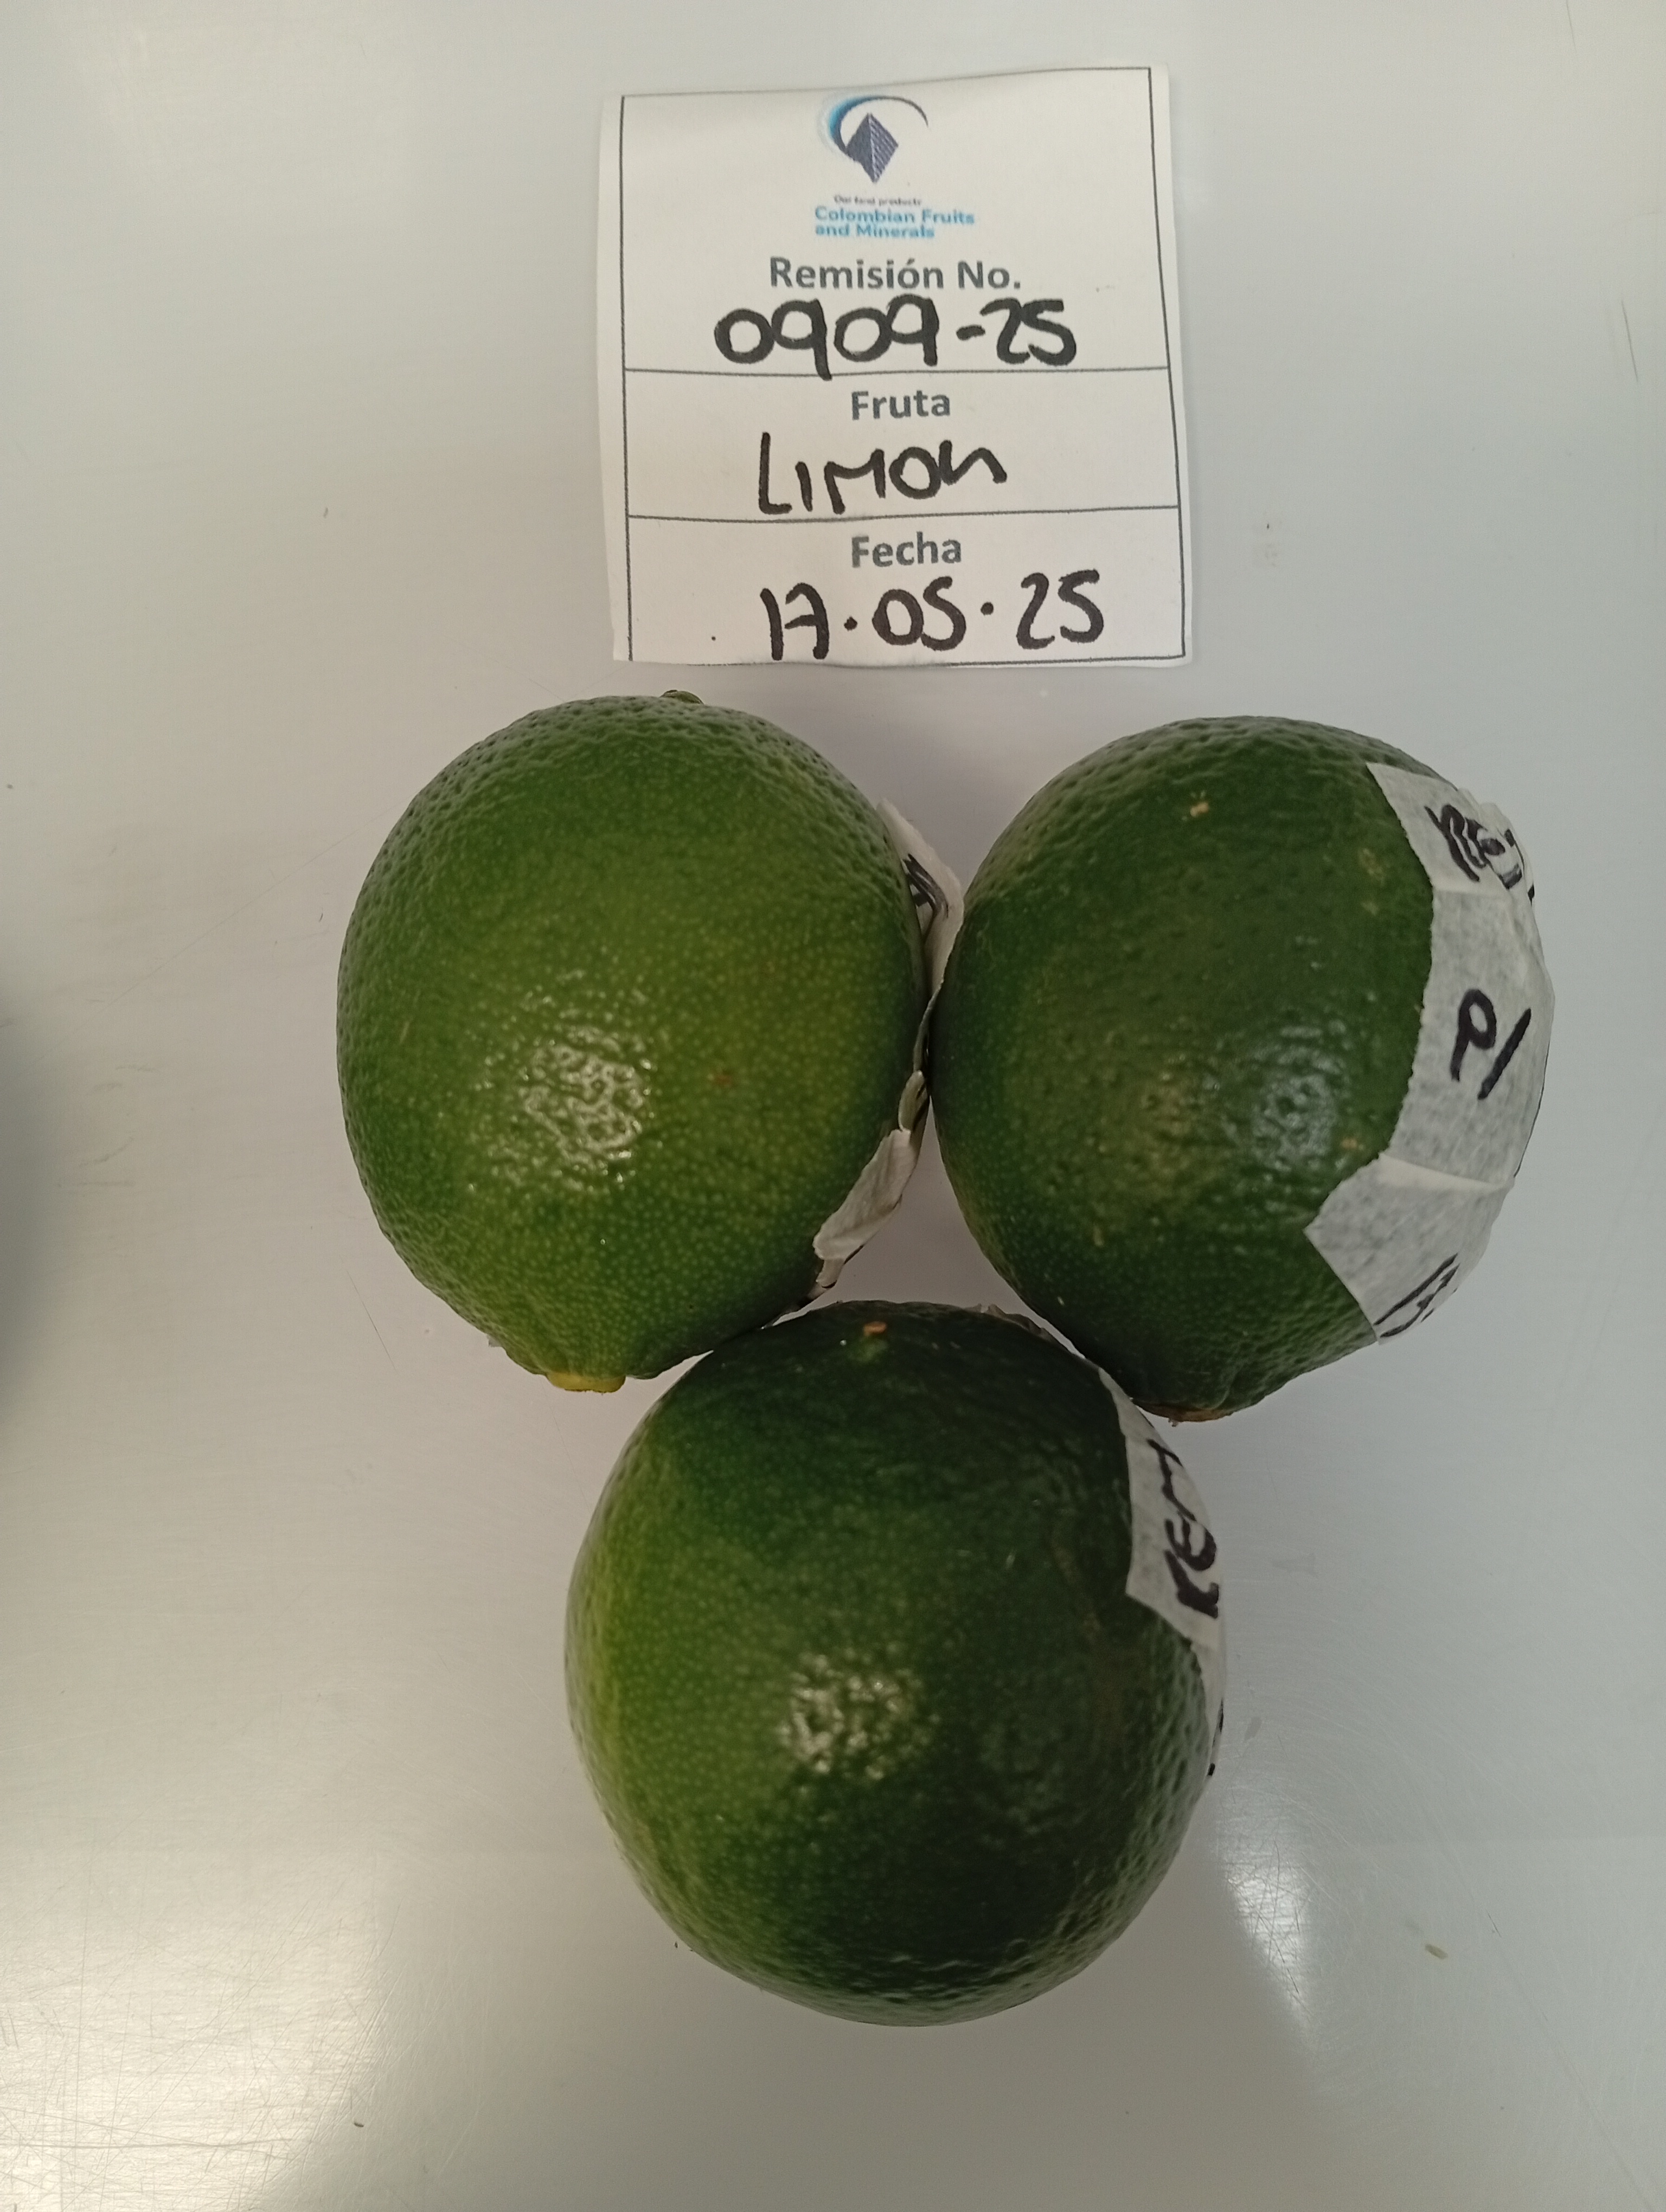 Our local products
Colombian Fruits
and Minerals
Remisión No.
0909-25
Fruta
LIMON
Fecha
17.05.25
P1